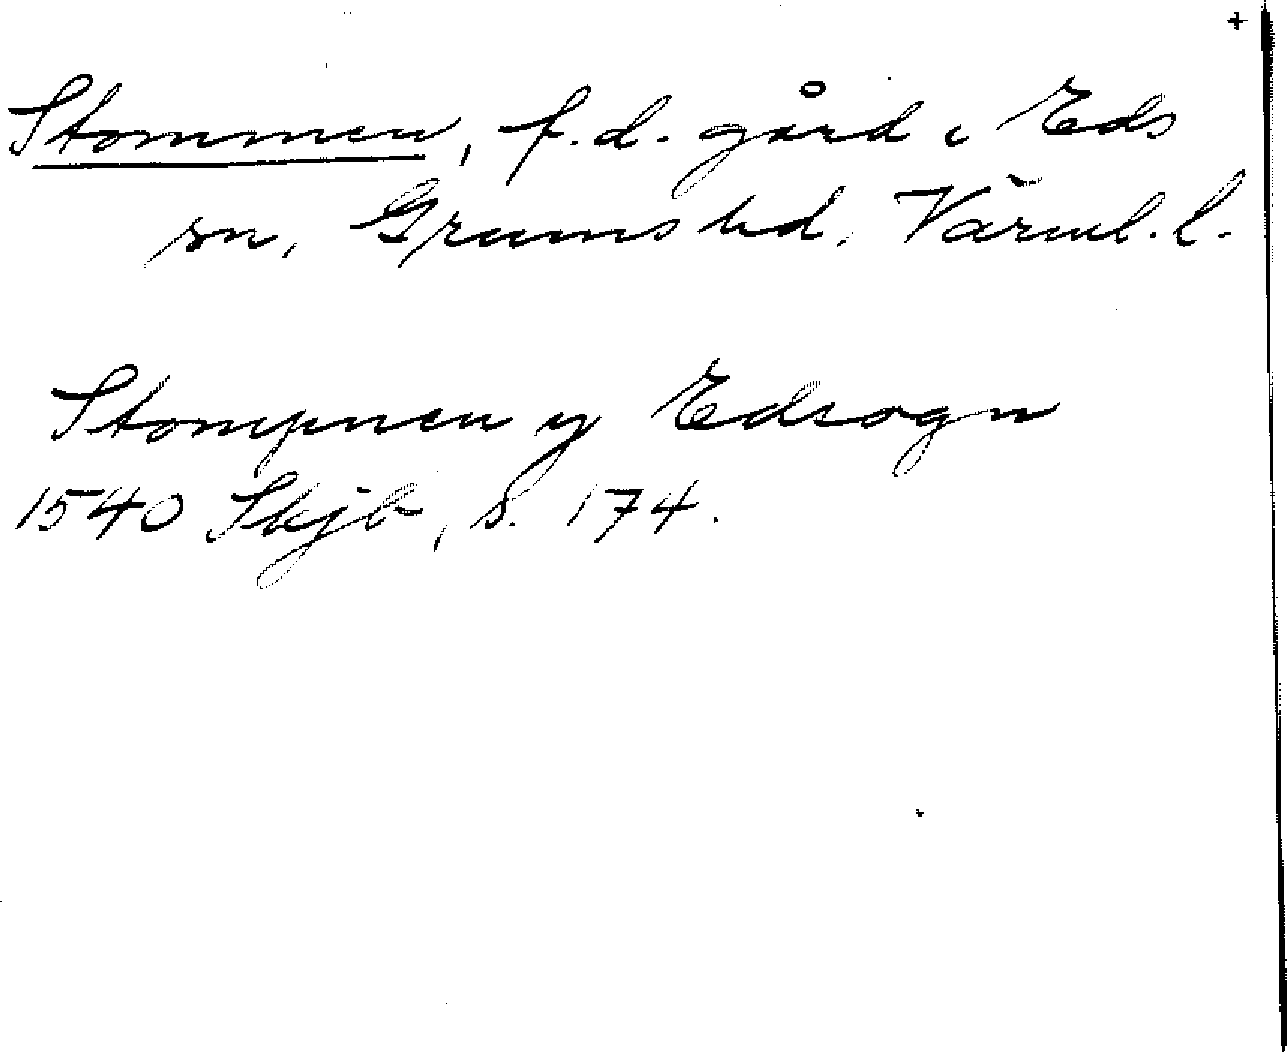 +
Stommen, f.d. gård i Eds
sn, Grums hd, Värml. l.
Stompnen y Edsogn
1540 Skjb, s. 174.